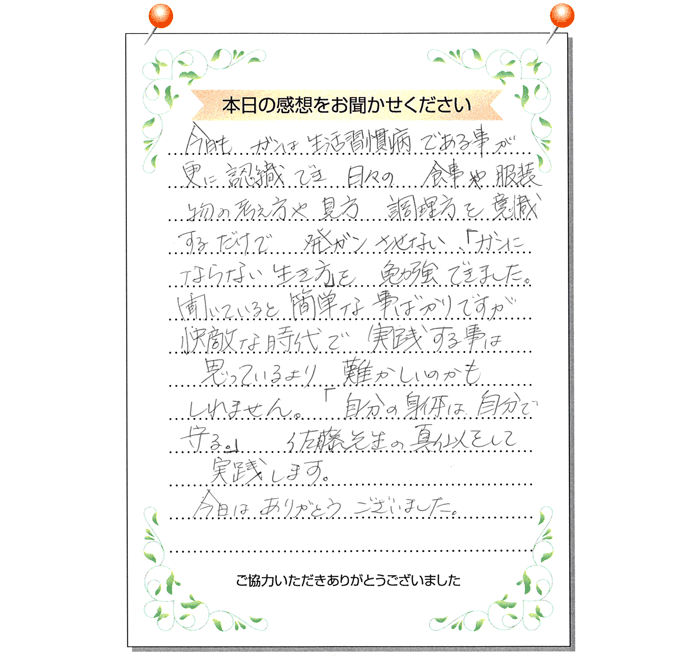 本日の感想をお聞かせください
今日も ガンは生活習慣病である事が
更に認識でき 日々の 食事や服装
物の考え方や見方 調理方を意識
するだけで 発ガンさせない、「ガンに
ならない生き方」を 勉強できました。
聞いていると簡単な事ばかりですが
快適な時代で 実践する事は
思っているより 難かしいのかも
しれません。「自分の身体は自分で
守る。」 佐藤先生の真似をして
実践します。
今日は ありがとうございました。
ご協力いただきありがとうございました